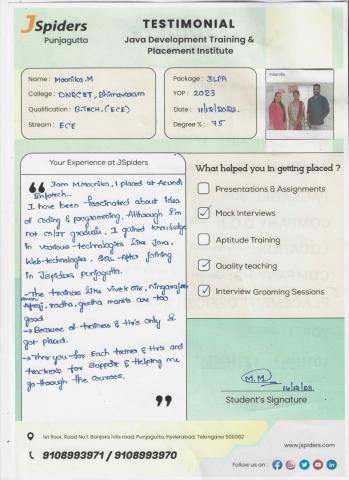 JSpiders
Punjagutta
TESTIMONIAL
Java Development Training &
Placement Institute
Name : Mounika.M
College : DNRCET, Bhimavaram
Qualification : B.TECH. (ECE)
Stream : ECE
Package : 3LPA
YOP : 2023
Date :
Degree % : 75
mounika
Your Experience at JSpiders
Iam M.Mounika, I placed at
Infotech..
I have been fascinated about idea
of coding & programming, Although I'm
not CS/IT graduate, I gained knowledge
in various technologies like Java,
Web-technologies, SQL After joining
in Jspiders punjagutta.
→The trainers like Vivek sir, ningaraju
radha, geetha mam's are too
good
→Because of trainers & Hr's only I
got placed.
→Thank you for Each trainer & Hr's and
trackers for Support & Helping me
go through the courses.
What helped you in getting placed ?
Presentations & Assignments
Mock Interviews
Aptitude Training
Quality teaching
Interview Grooming Sessions
M.M
Student's Signature
1st floor, Road No.1, Banjara hills road, Punjagutta, Hyderabad, Telangana 500082
9108993971 / 9108993970
www.jspiders.com
Follow us on :